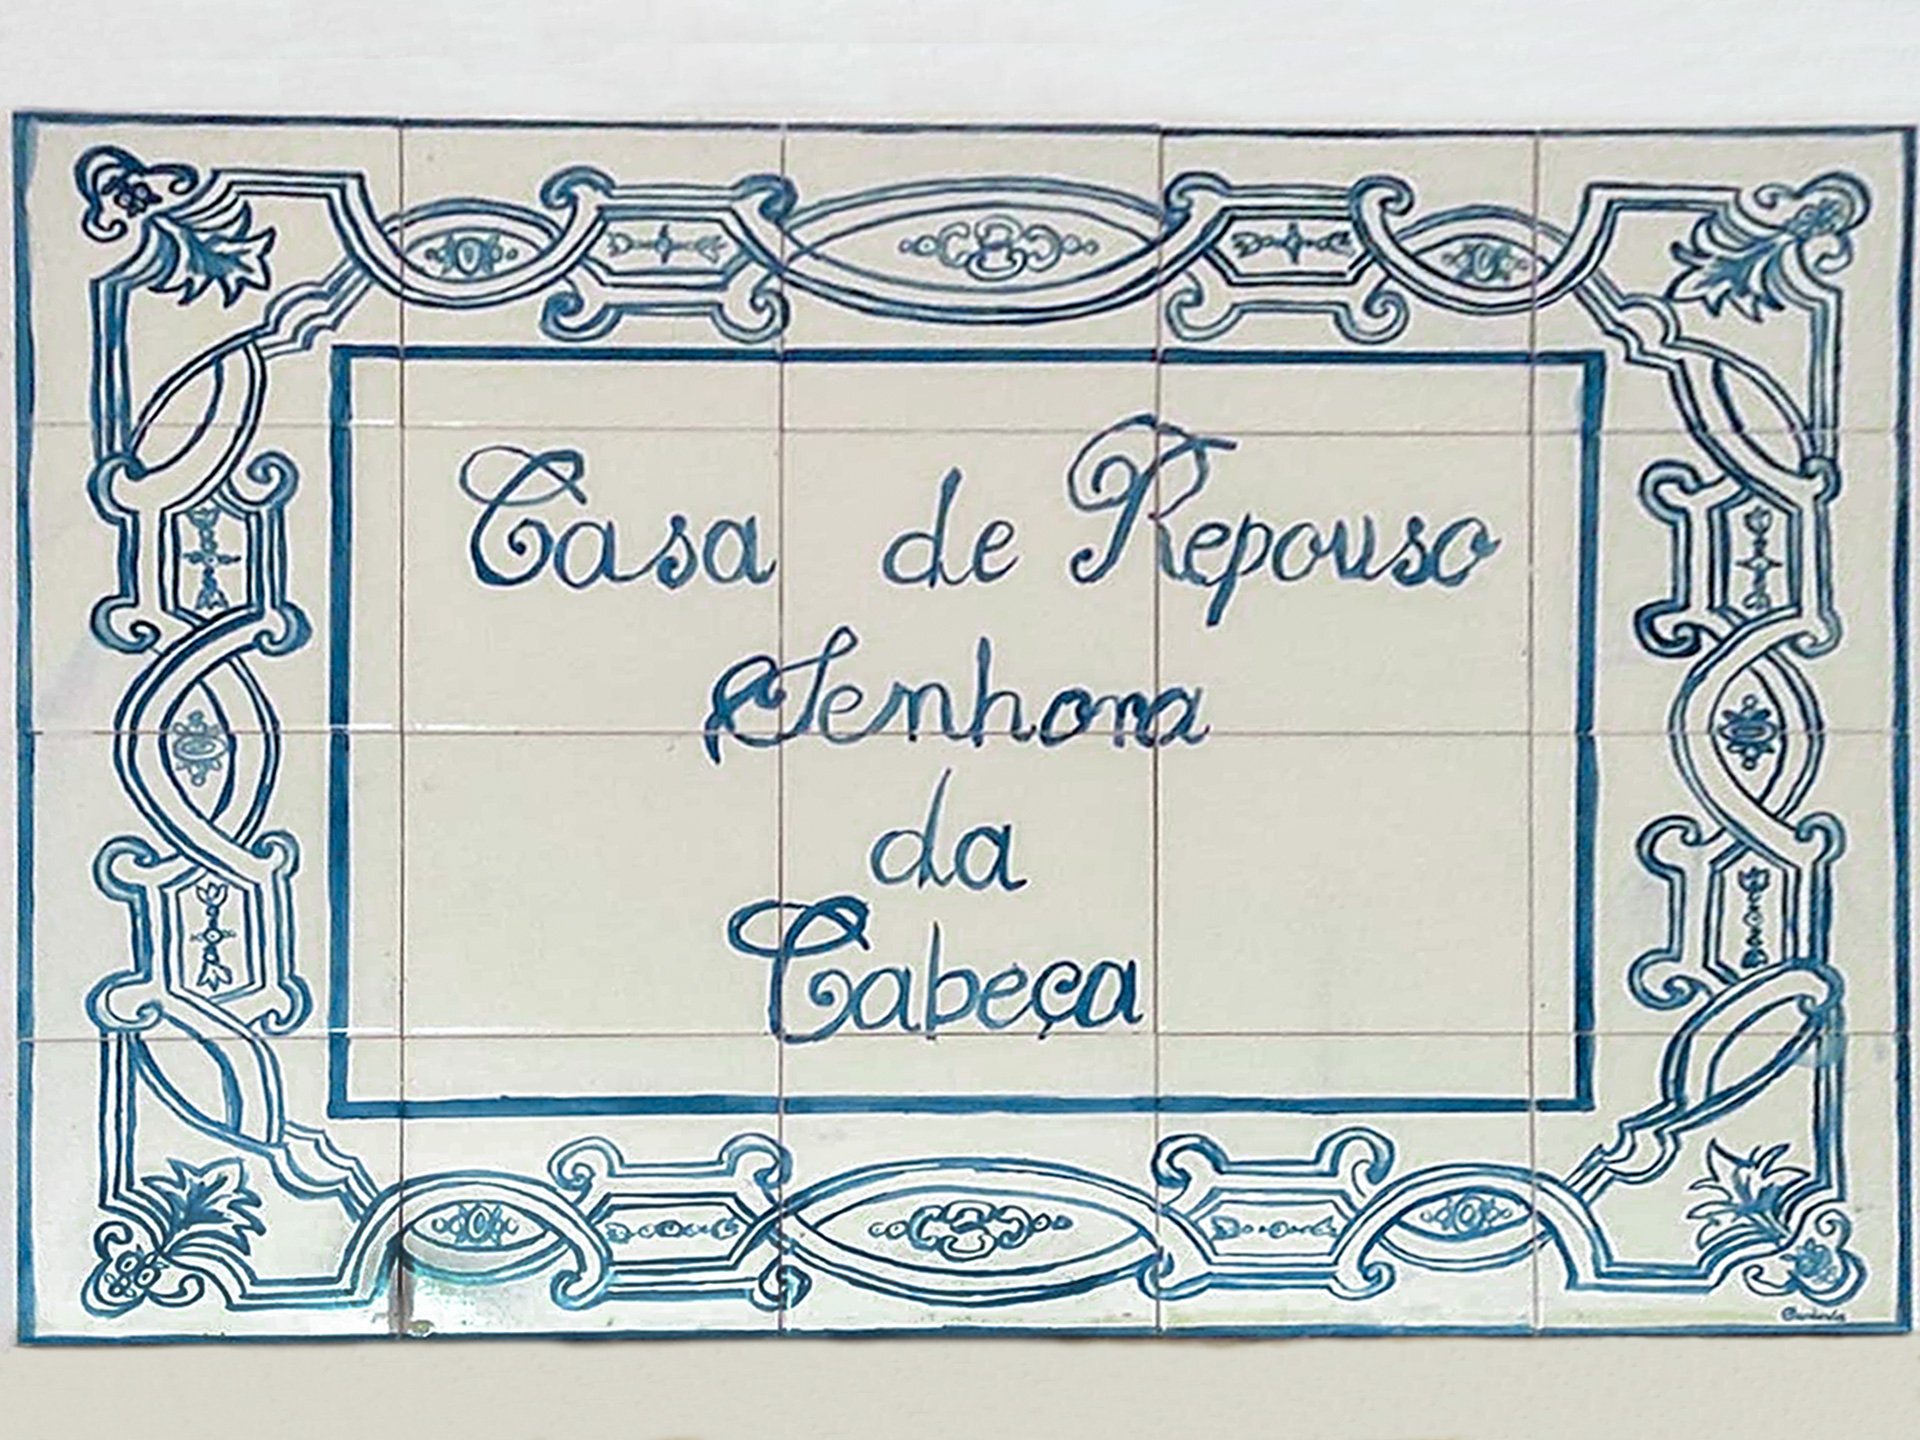 Casa de Repouso
Senhora
da
Cabeça